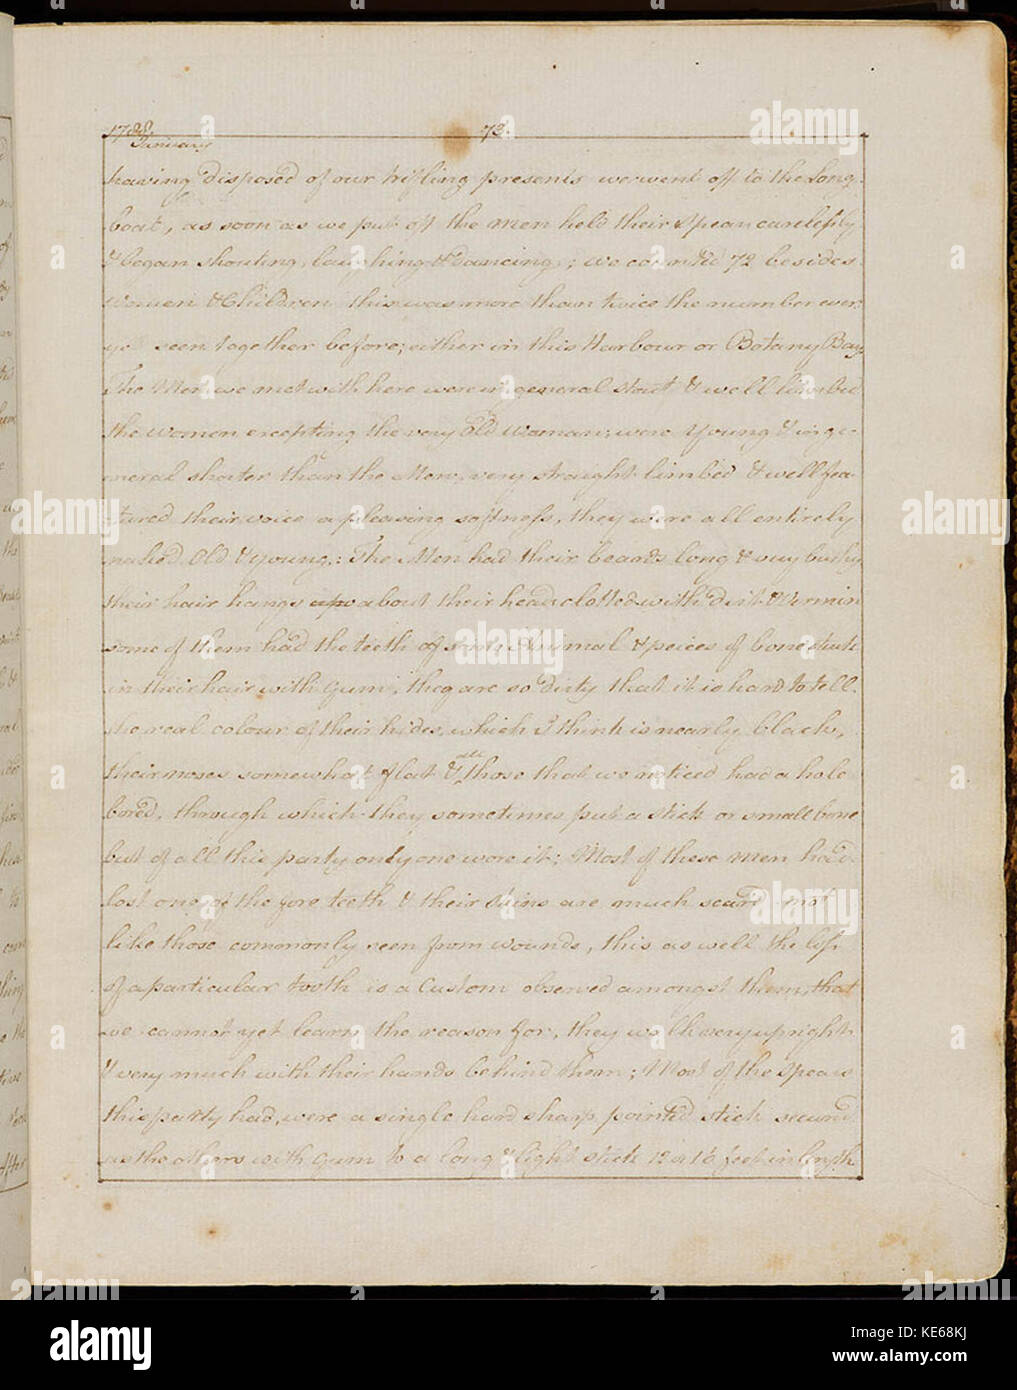 1788. 73.
January
having disposed of our trifling presents we went off to the Long-
boat, as soon as we put off the men held their spears carelessly
& began shouting, laughing & dancing; we counted 72 besides
Women & Children this was more than twice the number ever
yet seen together before; either in this Harbour or Botany Bay
The Men we met with here were in general stout & well limbed
the women excepting the very Old Woman; were Young & in ge-
neral shorter than the Men, very straight limbed & well fea-
tured their voice a pleasing softness, they were all entirely
naked Old & young: The Men had their beards long & very bushy
their hair hangs about their heads clotted with dirt & Vermin
some of them had the teeth of some Animal & peices of bone stuck
in their hair with gum, they are so dirty that it is hard to tell
the real colour of their hides, which I think is nearly black,
their noses somewhat flat & all those that we noticed had a hole
bored, through which they sometimes put a stick or small bone
but of all this party only one wore it; Most of these men had
lost one of the fore teeth & their skins are much scard not
like those commonly seen from wounds, this as well the loss
of a particular tooth is a Custom observed amongst them, that
we cannot yet learn the reason for, they walk very upright
& very much with their hands behind them; Most of the spears
this party had, were a single hard sharp pointed stick secured
as the others with gum to a long & light stick 12 or 16 feet in length
After
alamy stock photo
alamy
a
KE68KJ
www.alamy.com